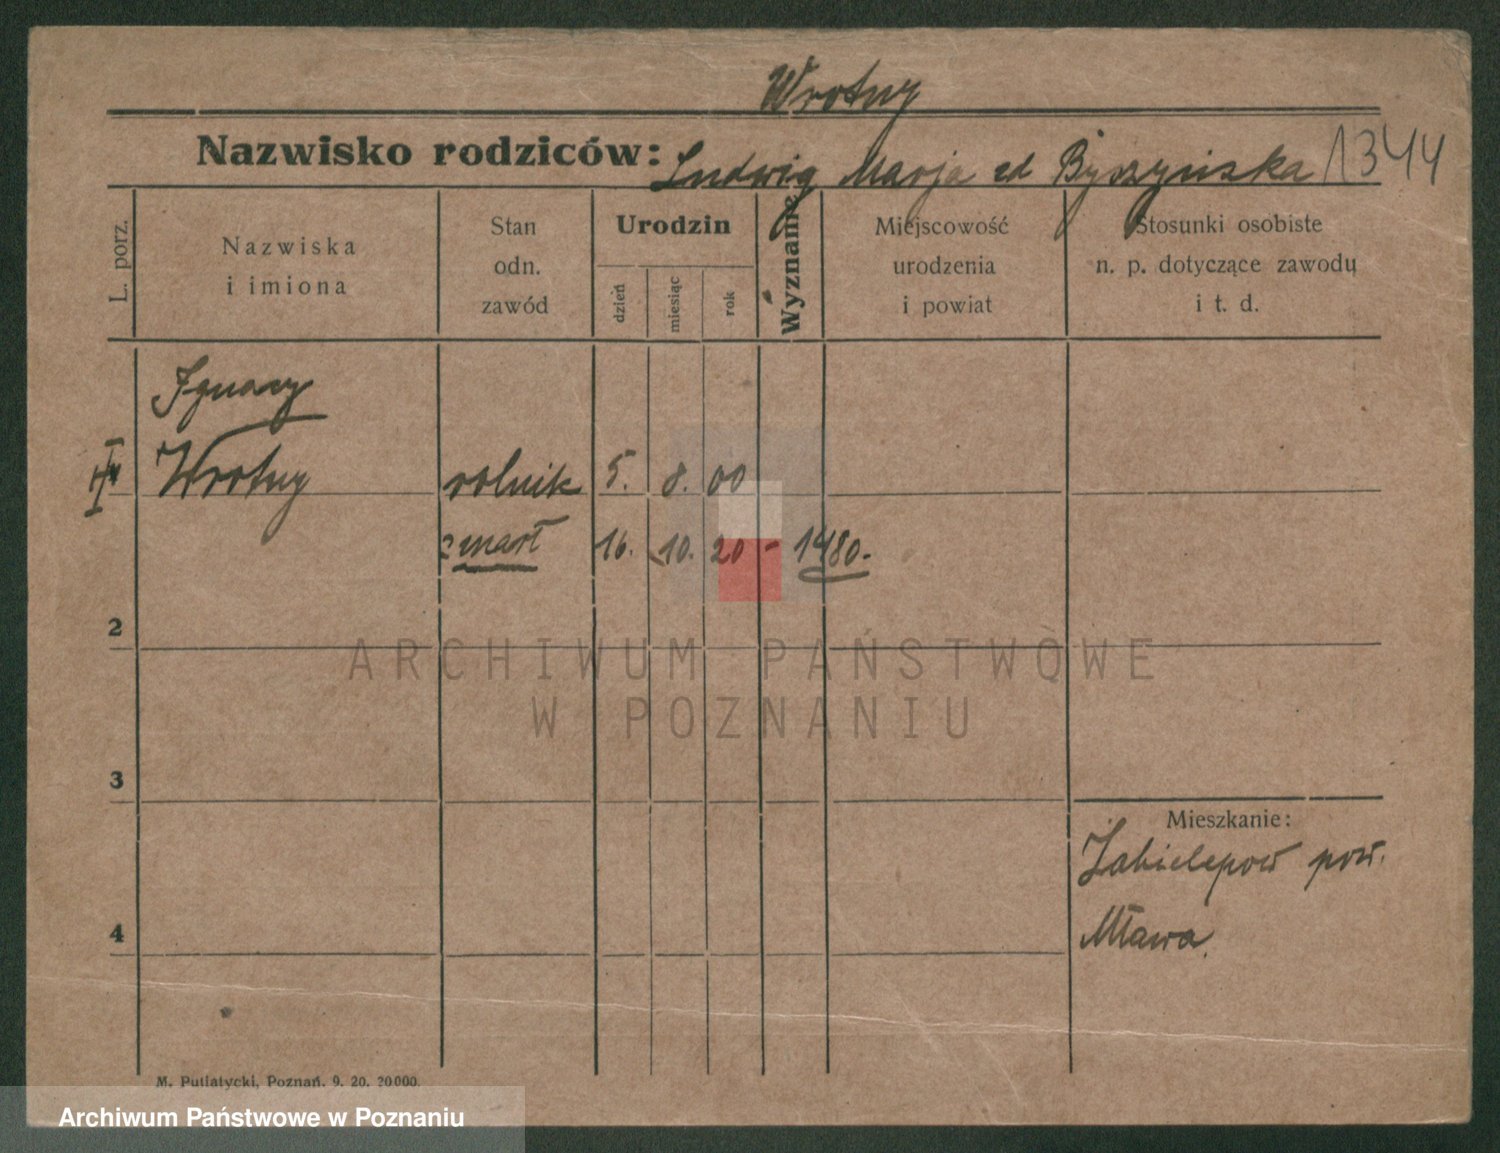 Wrotny
Nazwisko rodziców: Ludwig Marja zd Byszyńska 1344
L. porz.
Nazwiska
i imiona
Stan
odn.
zawód
Urodzin
dzień
miesiąc
rok
Wyznanie
Miejscowość
urodzenia
i powiat
Stosunki osobiste
n. p. dotyczące zawodu
i t. d.
Ignacy
Wrotny rolnik 5. 8. 00
zmarł 16. 10. 20 - 1480.-
2
ARCHIWUM PAŃSTWOWE
W POZNANIU
3
Mieszkanie:
pow.
4
Mława
M. Putiatycki, Poznań. 9. 20. 20000.
Archiwum Państwowe w Poznaniu